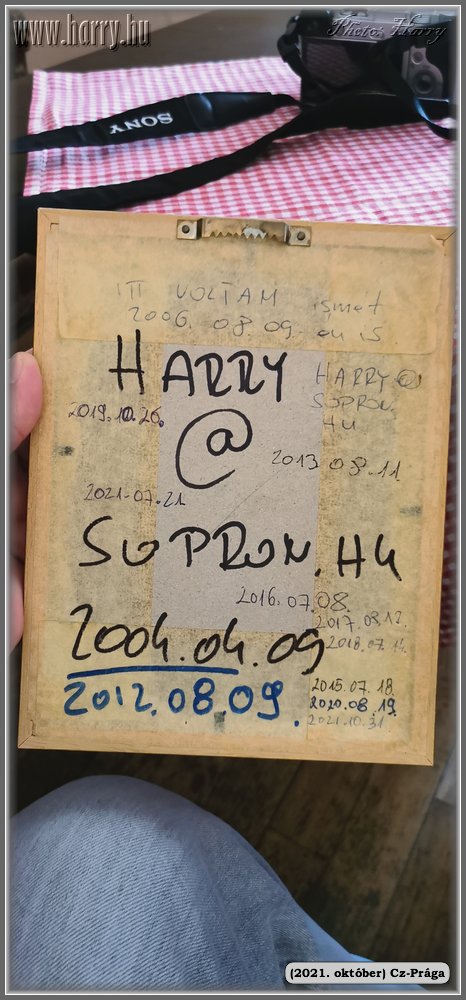 www.harry.hu
Photo: Harry
SONY
ITT VOLTAM ismét
2006. 08. 09-én is
HARRY
HARRY@
SOPRON.
HU
2019.10.26.
@
2013 08.11
2021-07.21
SOPRON.HU
2016.07.08.
2004.04.09
2017.08.12.
2018.07.14.
2012.08.09.
2015.07.18.
2020.08.19.
2021.10.31.
(2021. október) Cz-Prága